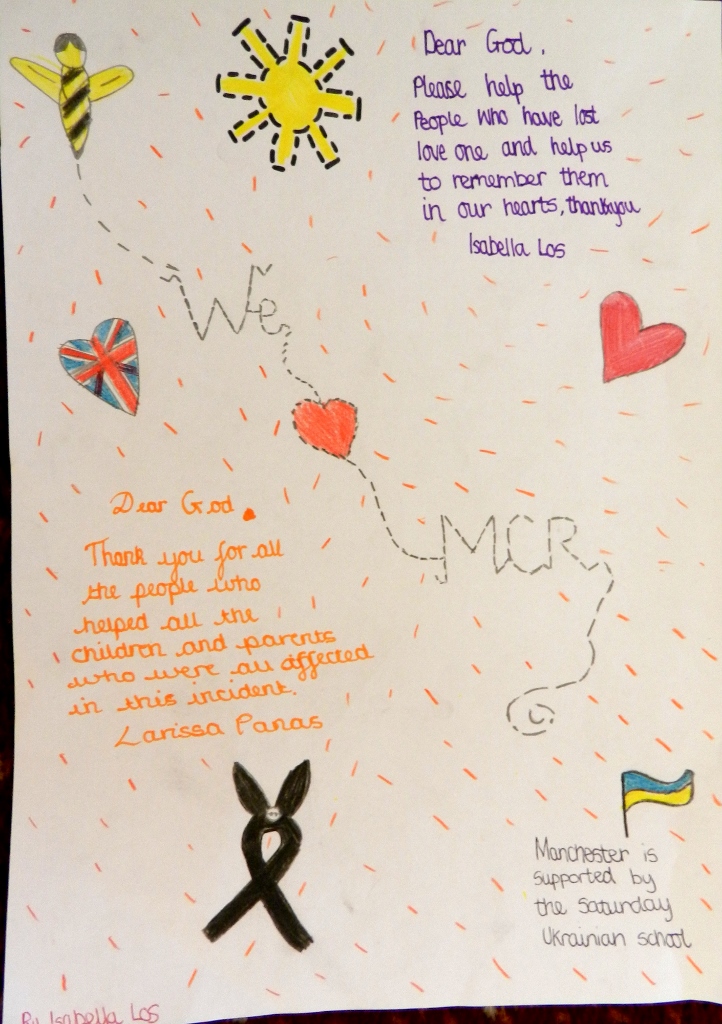 Dear God,
Please help the
People who have lost
love one and help us
to remember them
in our hearts, thankyou
Isabella Los
We
MCR
Dear God.
Thank you for all
the people who
helped all the
children and parents
who were all affected
in this incident.
Larissa Panas
Manchester is
supported by
the Saturday
Ukrainian school
By Isabella Los